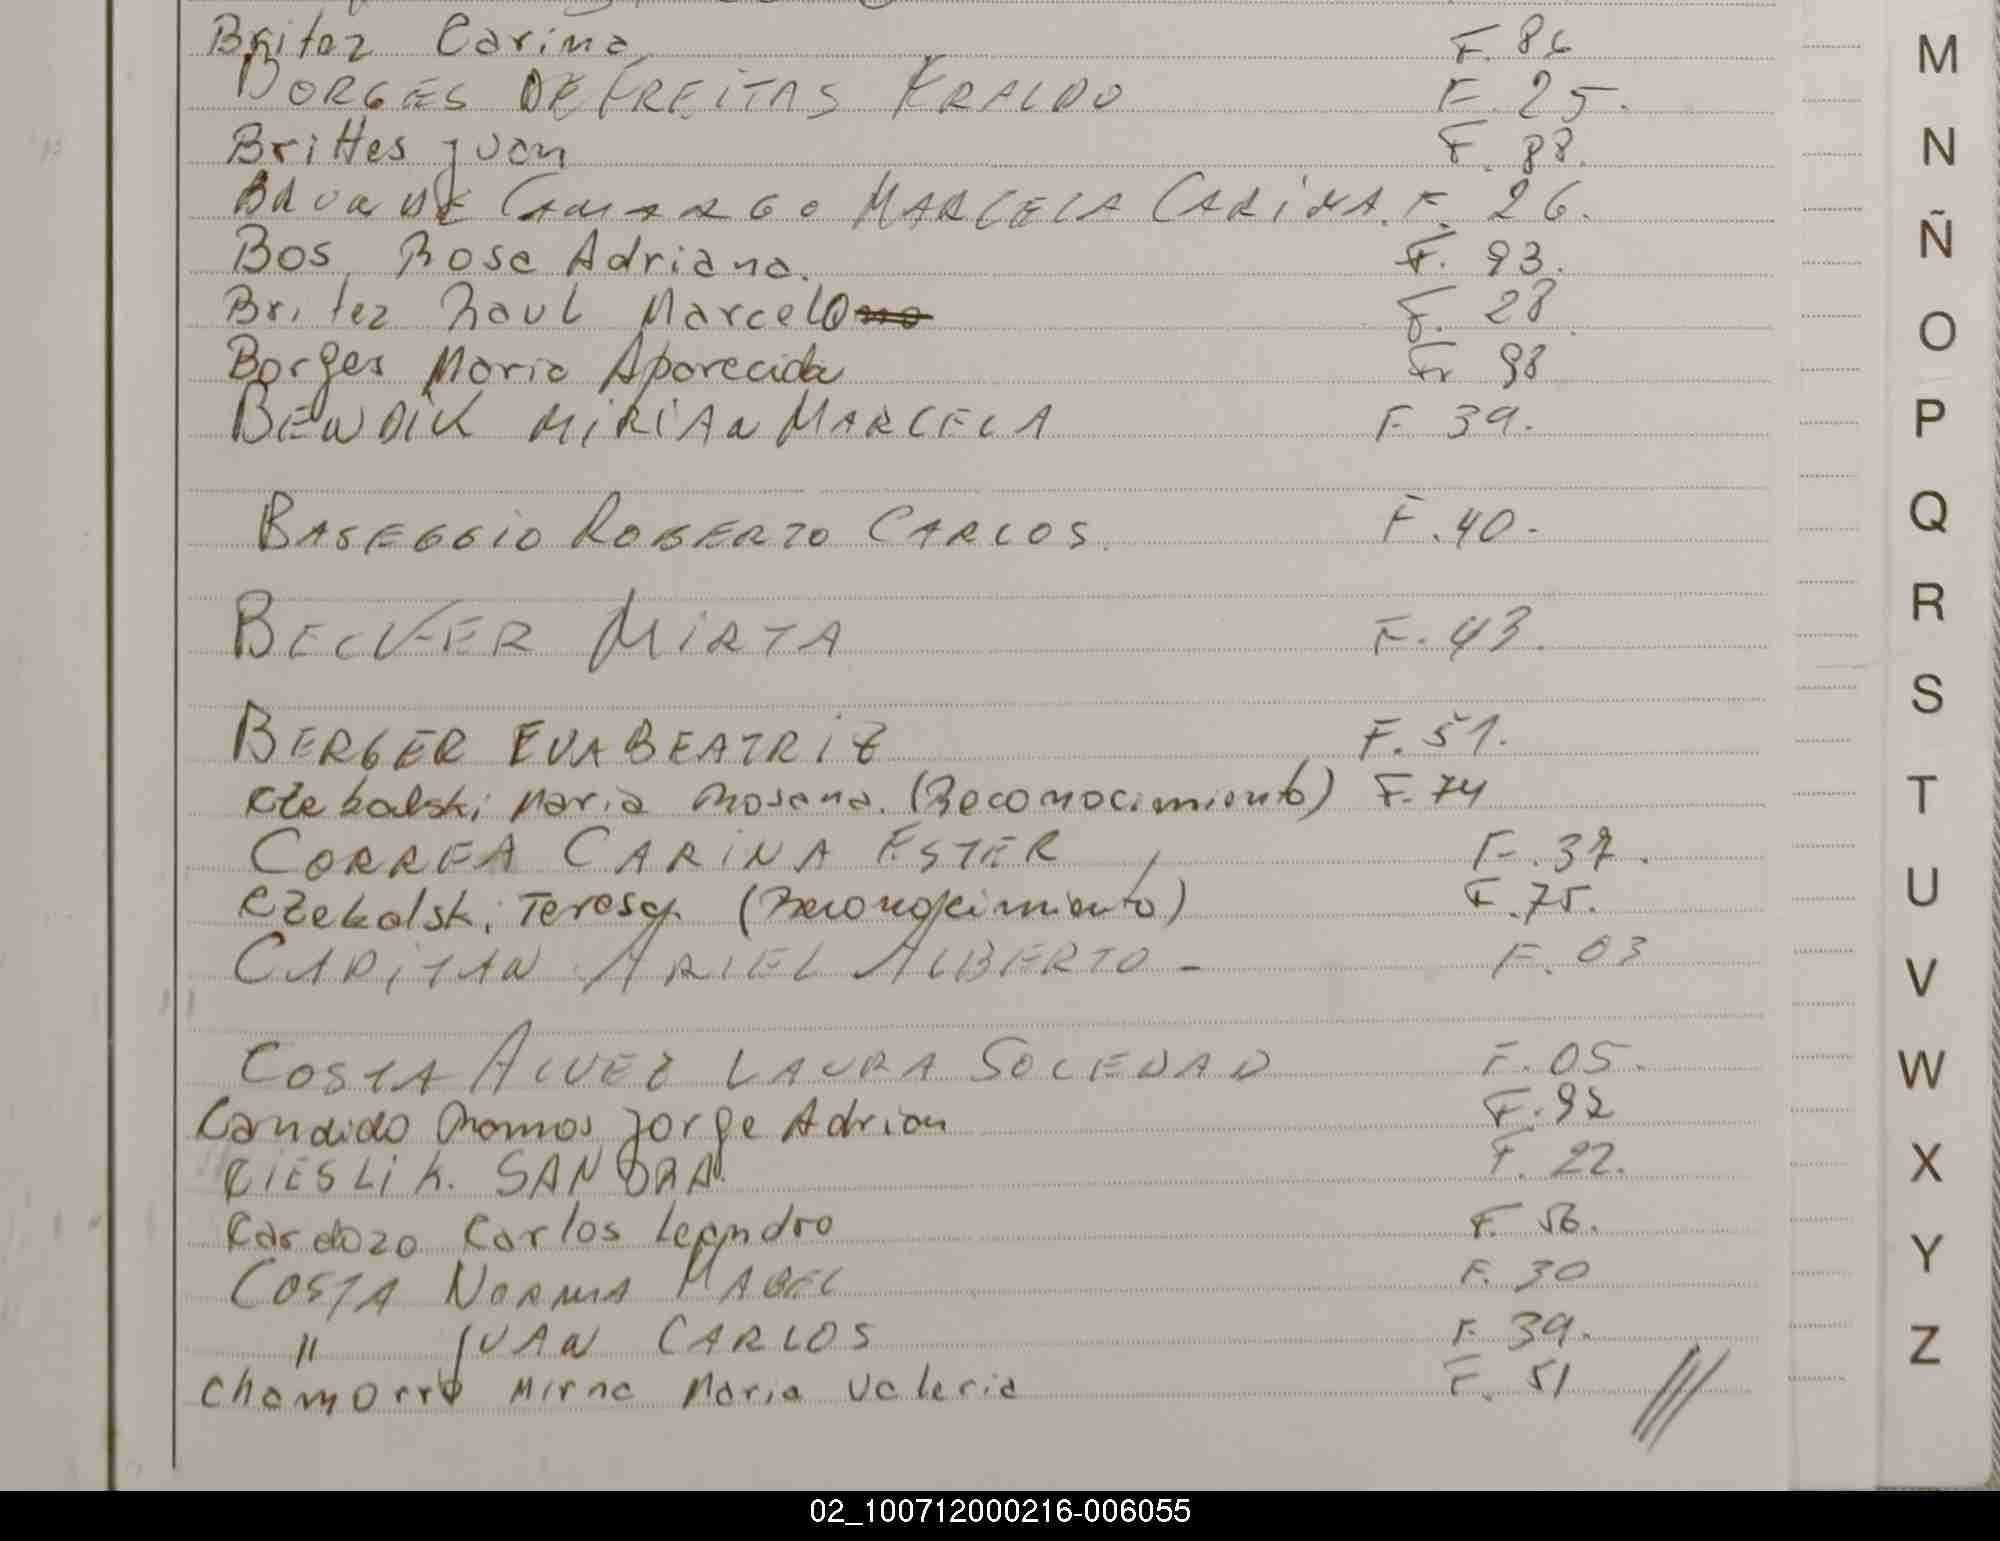 Britez Carina F. 86
BORGES DE FREITAS ERALDO F. 25.
Brittes Juan F. 88.
DE CAMARGO MARCELA CARINA. F. 26.
Bos, Rosa Adriana. F. 93.
Britez Raul Marcelo F. 28.
Borges Maria Aparecida F. 98
BENDIK MIRIAN MARCELA F. 39.
BASEGGIO ROBERTO CARLOS. F. 40.
BECKER MIRTA F. 43.
BERGER EVA BEATRIZ F. 51.
Czekalski Maria Rosana. (Reconocimiento) F. 74
CORREA CARINA ESTER F. 37.
Czekalski Teresa. (Reconocimiento) F. 75.
CAPITAN ARIEL ALBERTO - F. 03
COSTA ALVEZ LAURA SOLEDAD F. 05.
Candido Ramos Jorge Adrian F. 92
CIESLIK. SANDRA F. 22.
Cardozo Carlos Leandro F. 56.
COSTA NORMA MABEL F. 30
" JUAN CARLOS F. 39.
Chamorro Mirna Maria Valeria F. 51
M
N
Ñ
O
P
Q
R
S
T
U
V
W
X
Y
Z
02_100712000216-006055